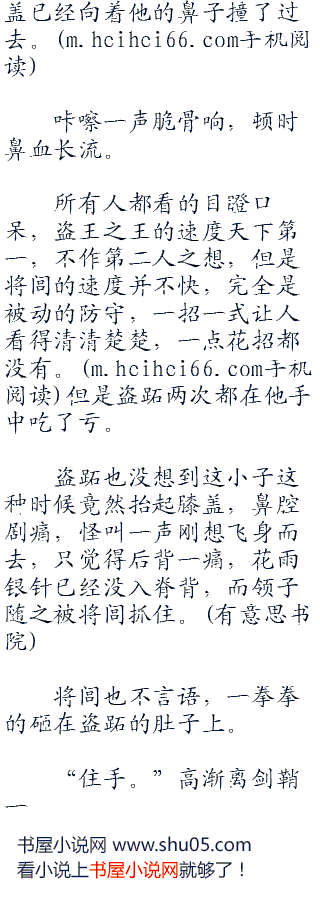 盖已经向着他的鼻子撞了过
去。(m.hcihci66.com手机阅
读)
咔嚓一声脆骨响，顿时
鼻血长流。
所有人都看的目瞪口
呆，盗王之王的速度天下第
一，不作第二人之想，但是
将闾的速度并不快，完全是
被动的防守，一招一式让人
看得清清楚楚，一点花招都
没有。(m.hcihci66.com手机
阅读)但是盗跖两次都在他手
中吃了亏。
盗跖也没想到这小子这
种时候竟然抬起膝盖，鼻腔
剧痛，怪叫一声刚想飞身而
去，只觉得后背一痛，花雨
银针已经没入脊背，而领子
随之被将闾抓住。(有意思书
院)
将闾也不言语，一拳拳
的砸在盗跖的肚子上。
“住手。”高渐离剑鞘
一
书屋小说网 www.shu05.com
看小说上书屋小说网就够了！